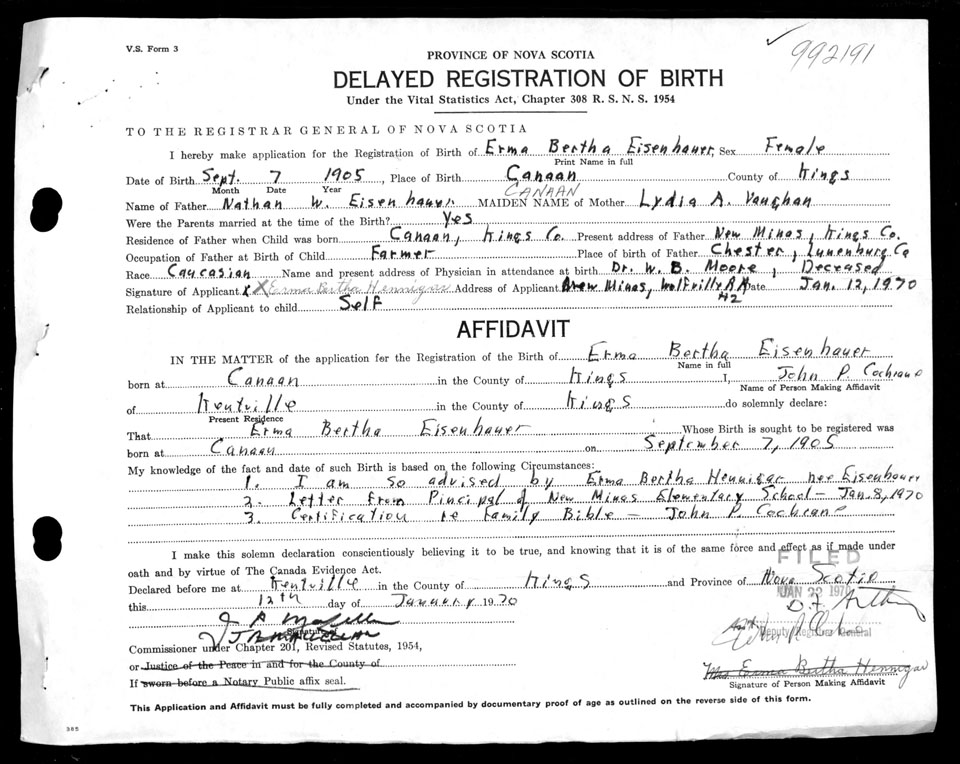 V.S. Form 3
992191
PROVINCE OF NOVA SCOTIA
DELAYED REGISTRATION OF BIRTH
Under the Vital Statistics Act, Chapter 308 R. S. N. S. 1954
TO THE REGISTRAR GENERAL OF NOVA SCOTIA
I hereby make application for the Registration of Birth of Erma Bertha Eisenhauer, Sex Female
Print Name in full
Date of Birth Sept. 7 1905, Place of Birth Canaan County of Kings
Month Date Year CANAAN
Name of Father Nathan W. Eisenhauer MAIDEN NAME of Mother Lydia A. Vaughan
Were the Parents married at the time of the Birth? Yes
Residence of Father when Child was born Canaan, Kings Co. Present address of Father New Minas, Kings Co.
Occupation of Father at Birth of Child Farmer Place of birth of Father Chester, Lunenburg Co
Race Caucasian Name and present address of Physician in attendance at birth Dr. W. B. Moore, Deceased
Signature of Applicant X X Erma Bertha Hennigar Address of Applicant New Minas, Wolfville RR Date Jan. 12, 1970
#2
Relationship of Applicant to child Self
AFFIDAVIT
IN THE MATTER of the application for the Registration of the Birth of Erma Bertha Eisenhauer
Name in full
born at Canaan in the County of Kings I, John P. Cochrane
Name of Person Making Affidavit
of Kentville in the County of Kings do solemnly declare:
Present Residence
That Erma Bertha Eisenhauer Whose Birth is sought to be registered was
born at Canaan on September 7, 1905
My knowledge of the fact and date of such Birth is based on the following Circumstances:
1. I am so advised by Erma Bertha Hennigar nee Eisenhauer
2. Letter from Pincipal of New Minas Elementary School - Jan. 8, 1970
3. Certification re Family Bible - John P. Cochrane
I make this solemn declaration conscientiously believing it to be true, and knowing that it is of the same force and effect as if made under
oath and by virtue of The Canada Evidence Act.
FILED
Declared before me at Kentville in the County of Kings and Province of Nova Scotia
JAN 22 1970
this 12th day of January 1970
Signature
Deputy Registrar General
Commissioner under Chapter 201, Revised Statutes, 1954,
or Justice of the Peace in and for the County of
Mrs Erma Bertha Hennigar
If sworn before a Notary Public affix seal.
Signature of Person Making Affidavit
This Application and Affidavit must be fully completed and accompanied by documentary proof of age as outlined on the reverse side of this form.
385